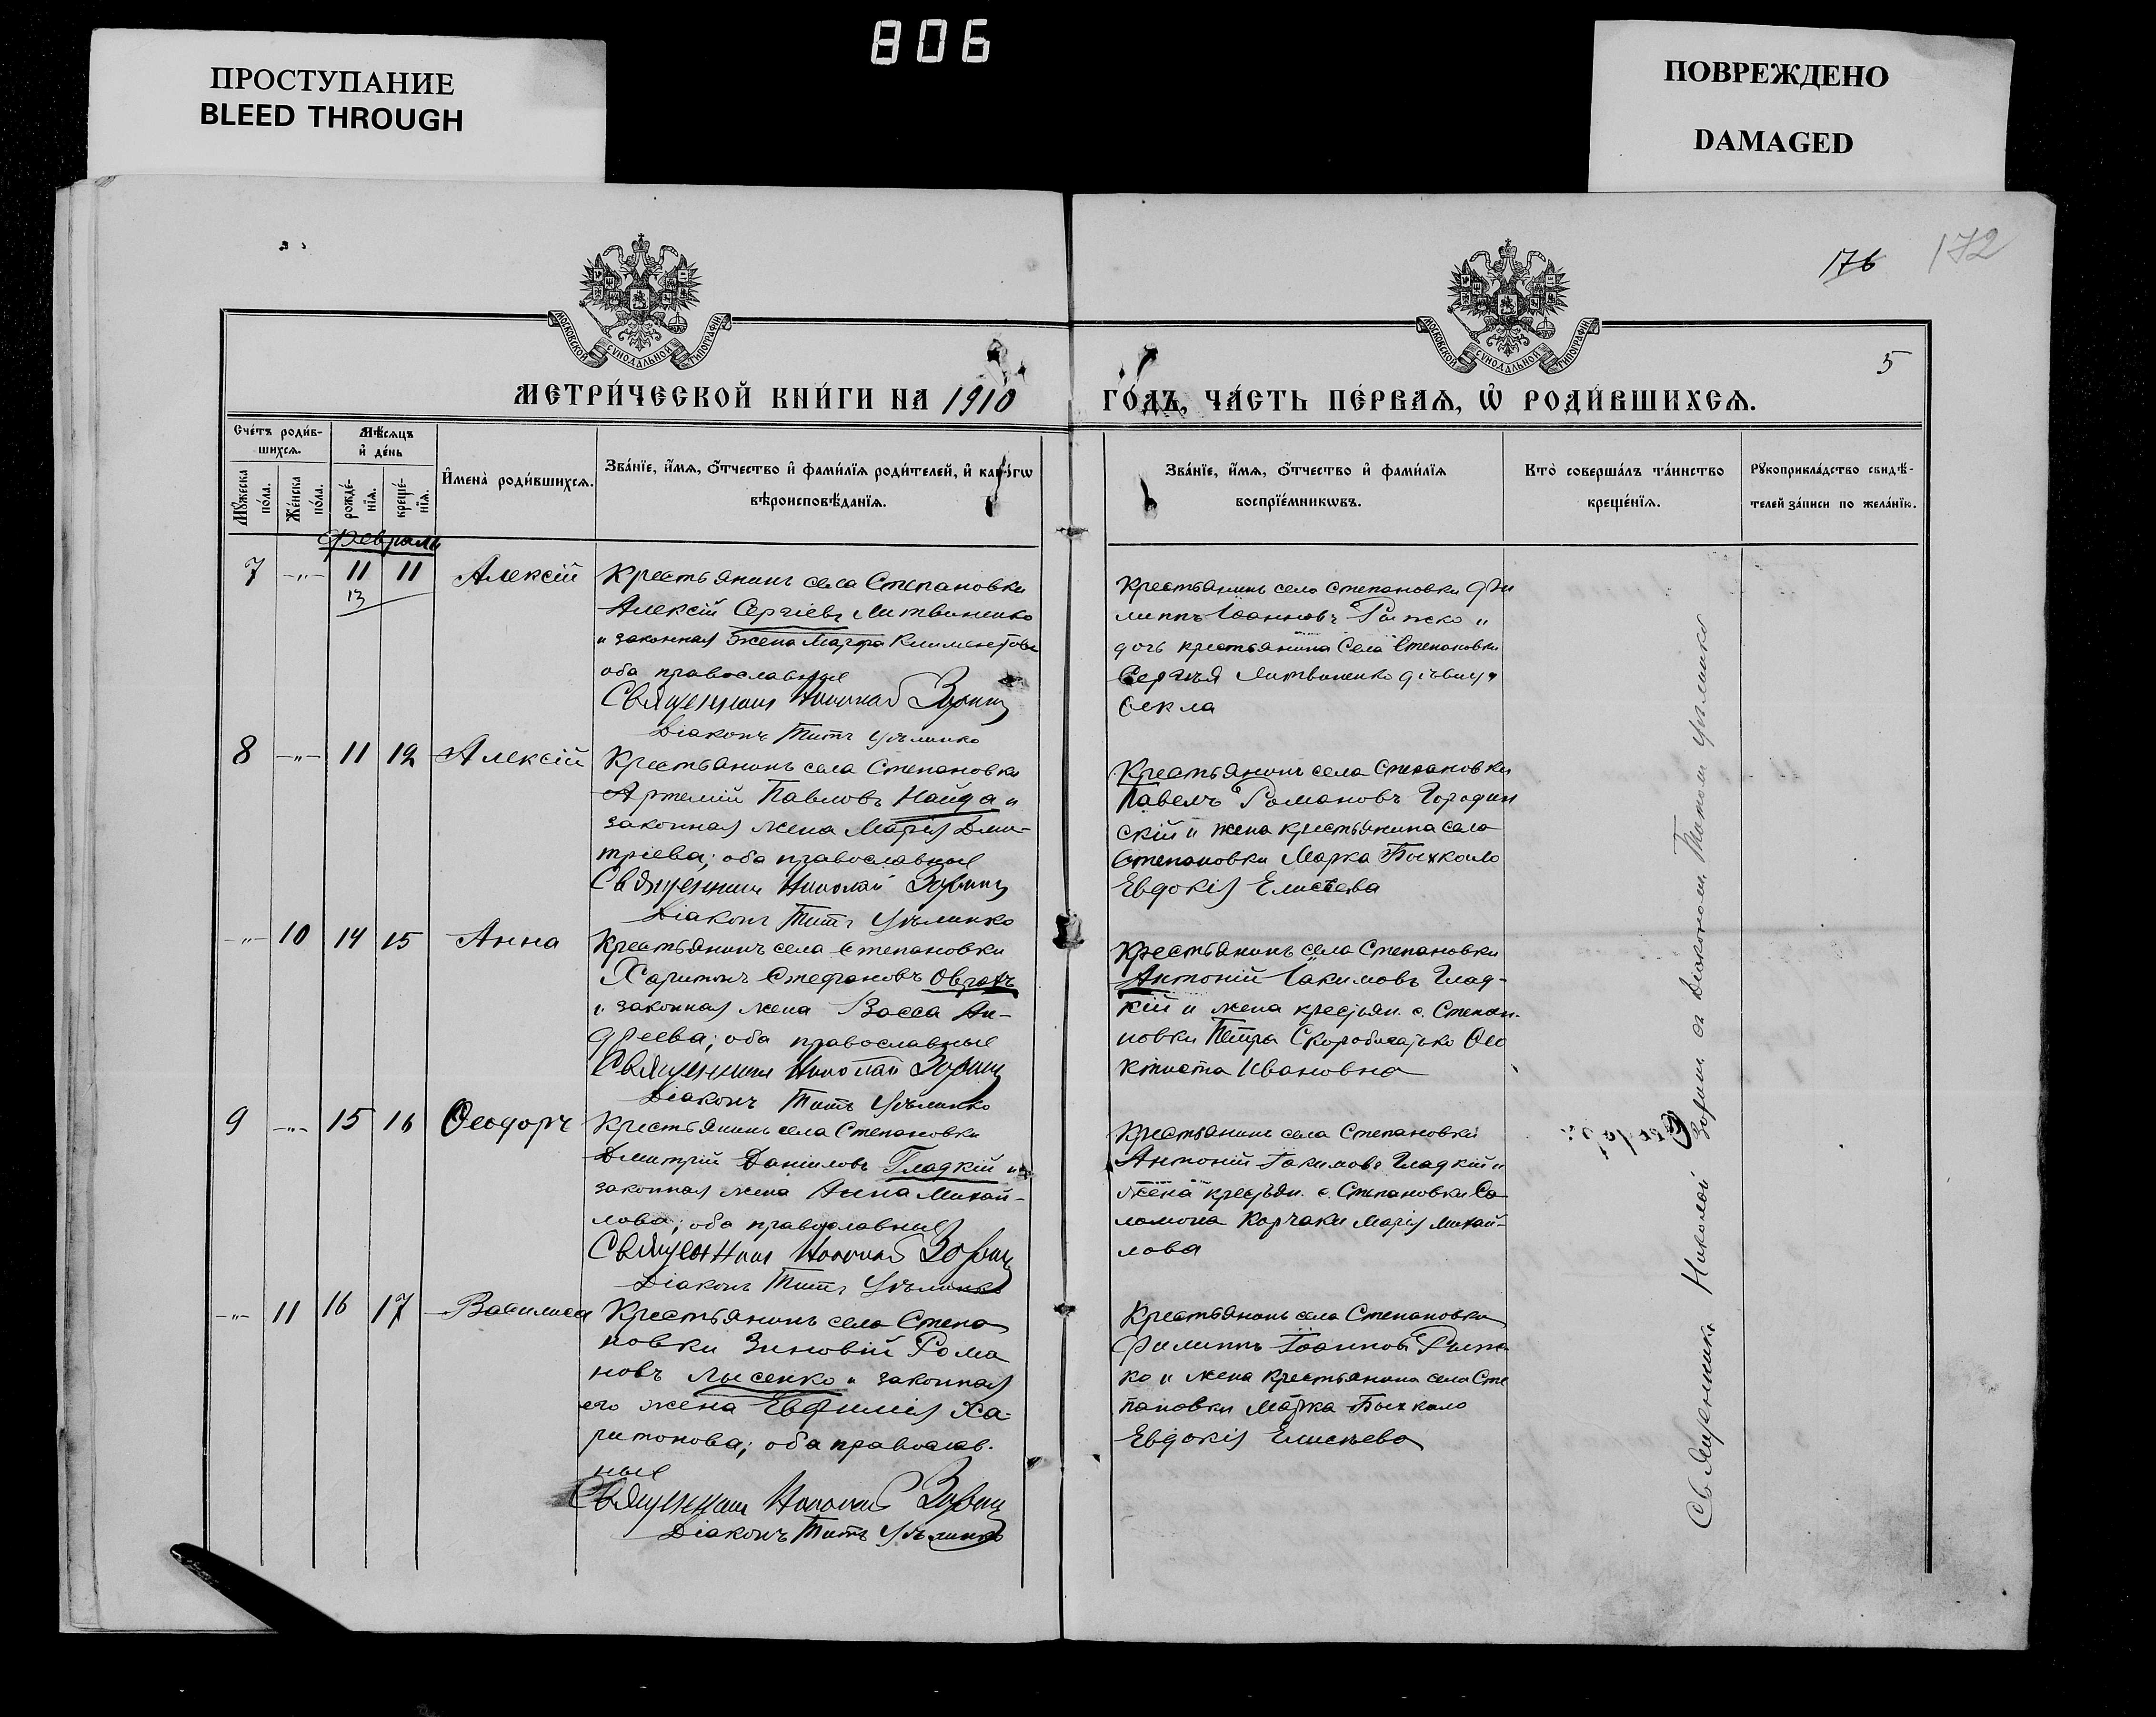 806
ПРОСТУПАНИЕ
BLEED THROUGH
ПОВРЕЖДЕНО
DAMAGED
176
172
5
МОСКОВСКОЙ СѴНОДАЛЬНОЙ ТИПОГРАФІИ
МОСКОВСКОЙ СѴНОДАЛЬНОЙ ТИПОГРАФІИ
МЕТРИ́ЧЕСКОЙ КНИ́ГИ НА 1910
ГО́ДЪ, ЧА́СТЬ ПЕ́РВАѦ, Ѡ҆ РОДИ́ВШИХСѦ.
Сче́тъ роди́в-
шихсѧ.
Мꙋ́жеска по́ла.
Же́нска по́ла.
Мѣ́сѧцъ
и҆ де́нь
рожде́-
нїѧ.
креще́-
нїѧ.
И҆мена̀ роди́вшихсѧ.
Зва́нїе, и҆́мѧ, ѻ҆́тчество и҆ фами́лїѧ роди́телей, и҆ како́гѡ
вѣроисповѣ́данїѧ.
Зва́нїе, и҆́мѧ, ѻ҆́тчество и҆ фами́лїѧ
воспрїе́мникѡвъ.
Кто̀ соверша́лъ та́инство
креще́нїѧ.
Рꙋкоприкла́дство свидѣ́-
телей за́писи по жела́нїю.
Февраль
7 -„- 11 11 Алексій
13
Крестьянинъ села Степановки
Алексій Сергіевъ Литвиненко
и законная жена Марфа Климентова
оба православные
Священникъ Николай Зорин
Діаконъ Титъ
Крестьянинъ села Степановки Фи
липпъ Іоанновъ Рыжко и
дочь крестьянина села Степановки
Сергія Литвиненко дѣвица
Ѳекла
8 -„- 11 12 Алексій
Крестьянинъ села Степановки
Артемій Павловъ Найда и
законная жена Марія Дми-
тріева; оба православные
Священникъ Николай Зорин
Діаконъ Титъ
Крестьянинъ села Степановки
Павелъ Романовъ Городин
скій и жена крестьянина села
Степановки Марка Бычкало
Евдокія Елисѣева
-„- 10 14 15 Анна
Крестьянинъ села Степановки
Харитонъ Стефановъ Оврахъ
и законная жена Васса Ан-
дреева; оба православные
Священникъ Николай Зорин
Діаконъ Титъ
Крестьянинъ села Степановки
Антоній Іакимовъ Глад-
кій и жена крестьян. с. Степан-
новки Петра Ѳео
ктиста Ивановна
9 -„- 15 16 Ѳеодоръ
Крестьянинъ села Степановки
Дмитрій Даніиловъ Гладкій и
законная жена Анна Михай-
лова; оба православные
Священникъ Николай Зорин
Діаконъ Титъ
Крестьянинъ села Степановки
Антоній Іакимовъ Гладкій и
жена крестьян. с. Степановки Со
ломона Корчаки Марія Михай-
лова
-„- 11 16 17 Василиса
Крестьянинъ села Степа
новки Зиновій Рома
новъ Лысенко и законная
его жена Евфимія Ха-
ритонова; оба православ.
ные
Священникъ Николай Зорин
Діаконъ Титъ
Крестьянинъ села Степановки
Филиппъ Іоанновъ Рыж
ко и жена крестьянина села Сте
пановки Марка Бычкало
Евдокія Елисѣева
Священникъ Николай Зорин съ Діакономъ Титомъ